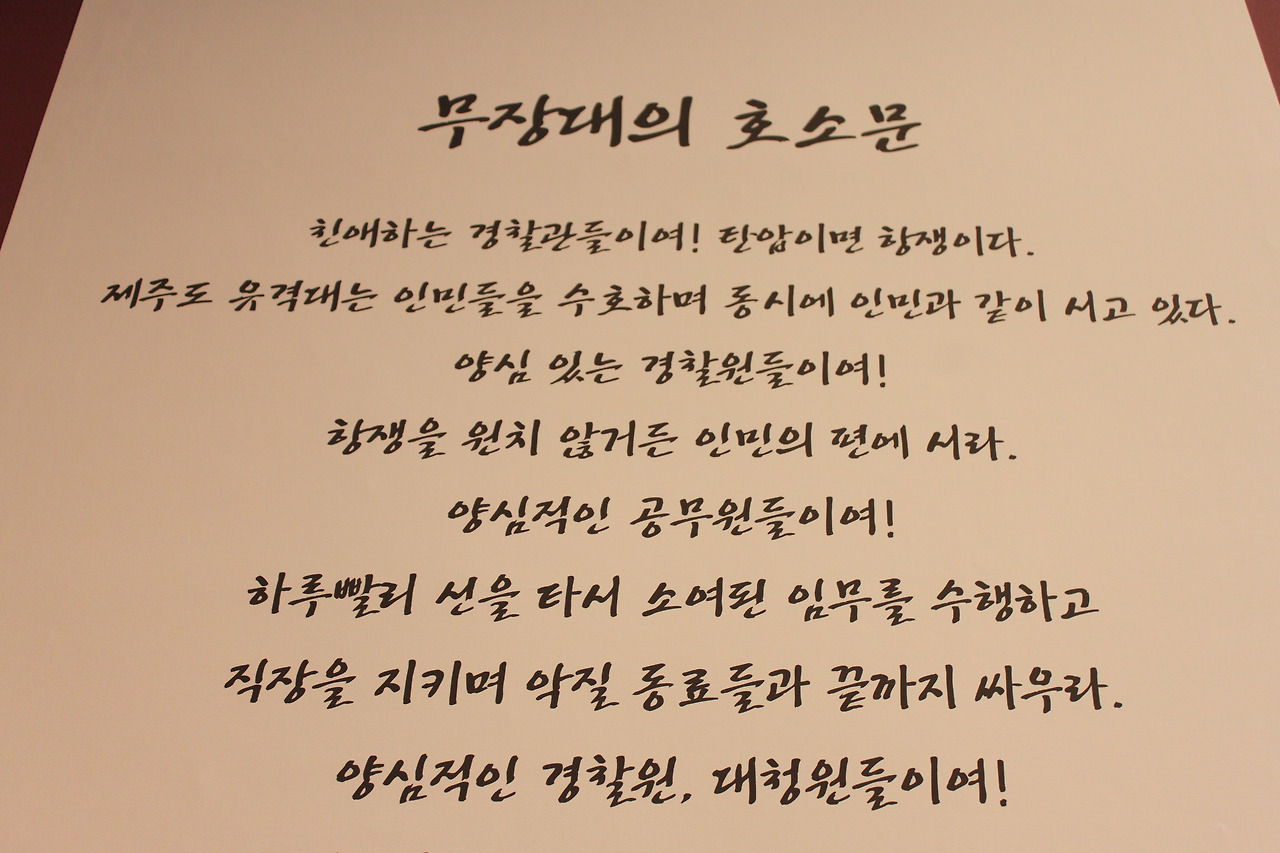 무장대의 호소문
친애하는 경찰관들이여! 탄압이면 항쟁이다.
제주도 유격대는 인민들을 수호하며 동시에 인민과 같이 서고 있다.
양심 있는 경찰원들이여!
항쟁을 원치 않거든 인민의 편에 서라.
양심적인 공무원들이여!
하루빨리 선을 타서 소여된 임무를 수행하고
직장을 지키며 악질 동료들과 끝까지 싸우라.
양심적인 경찰원, 대청원들이여!